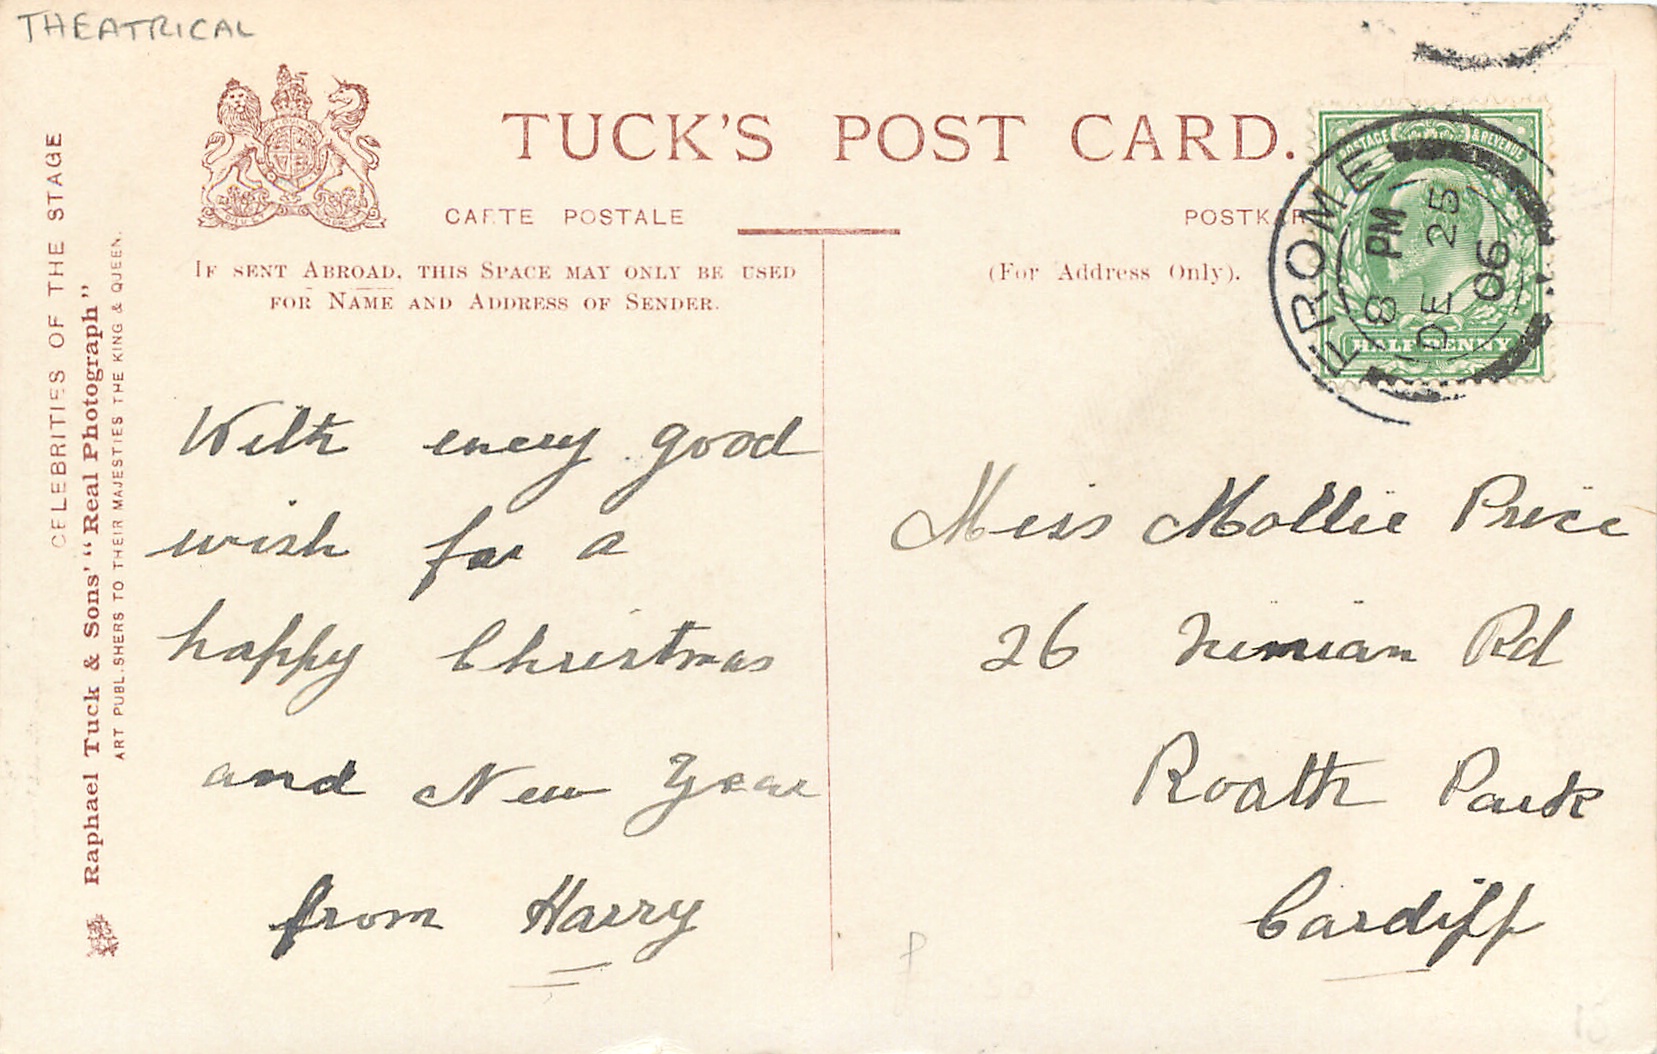 THEATRICAL
TUCK'S POST CARD.
CARTE POSTALE
POSTKAR
IF SENT ABROAD, THIS SPACE MAY ONLY BE USED
FOR NAME AND ADDRESS OF SENDER.
(For Address Only).
CELEBRITIES OF THE STAGE
Raphael Tuck & Sons' "Real Photograph"
ART PUBLISHERS TO THEIR MAJESTIES THE KING & QUEEN.
POSTAGE & REVENUE
HALFPENNY
FROME
8 PM
DE 25
06
With every good
wish for a
happy Christmas
and New Year
from Harry
Miss Mollie Price
26 Ninian Rd
Roath Park
Cardiff